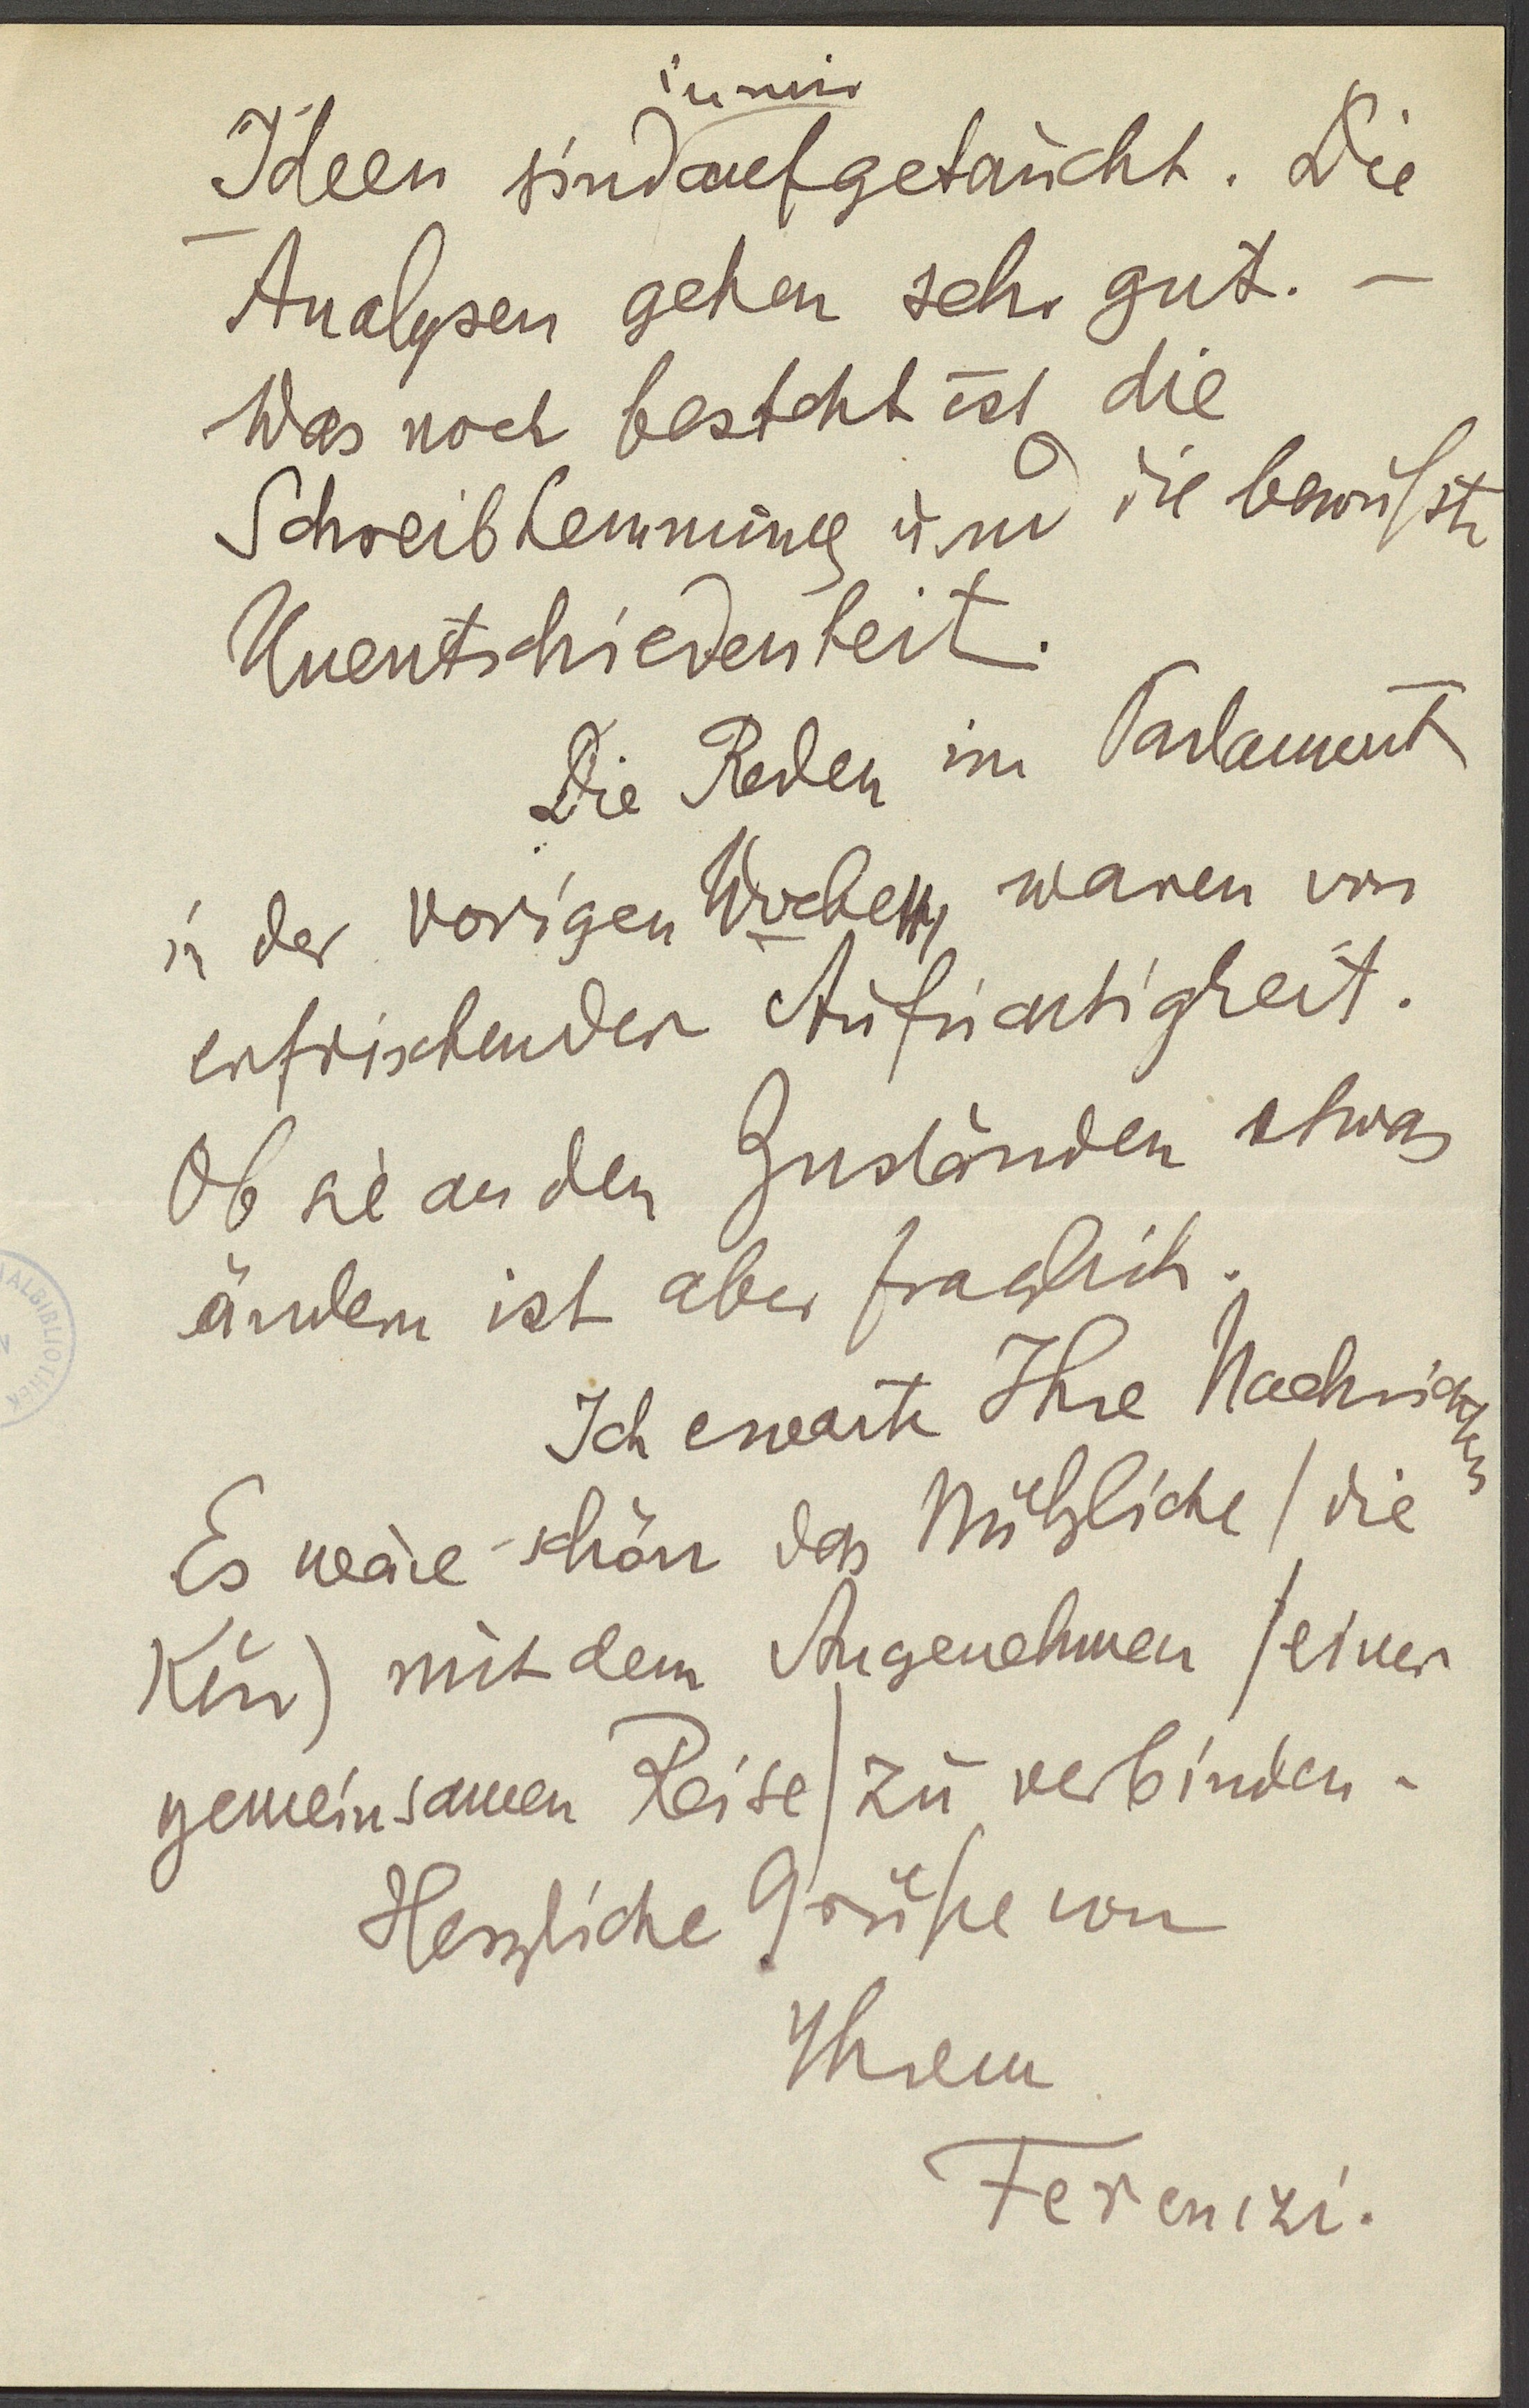 in mir
Ideen sind aufgetaucht. Die
Analysen gehen sehr gut. –
Was noch besteht ist die
Schreibhemmung und die bewußte
Unentschiedenheit.
Die Reden im Parlament
in der vorigen Woche, waren von
erfrischender Aufrichtigkeit.
Ob sie an den Zuständen etwas
ändern ist aber fraglich.
Ich erwarte Ihre Nachrichten
Es wäre schön das Nützliche (die
Kur) mit dem Angenehmen (einer
gemeinsamen Reise) zu verbinden.
Herzliche Grüße von
Ihrem
Ferenczi.
ALBIBLIOTHEK